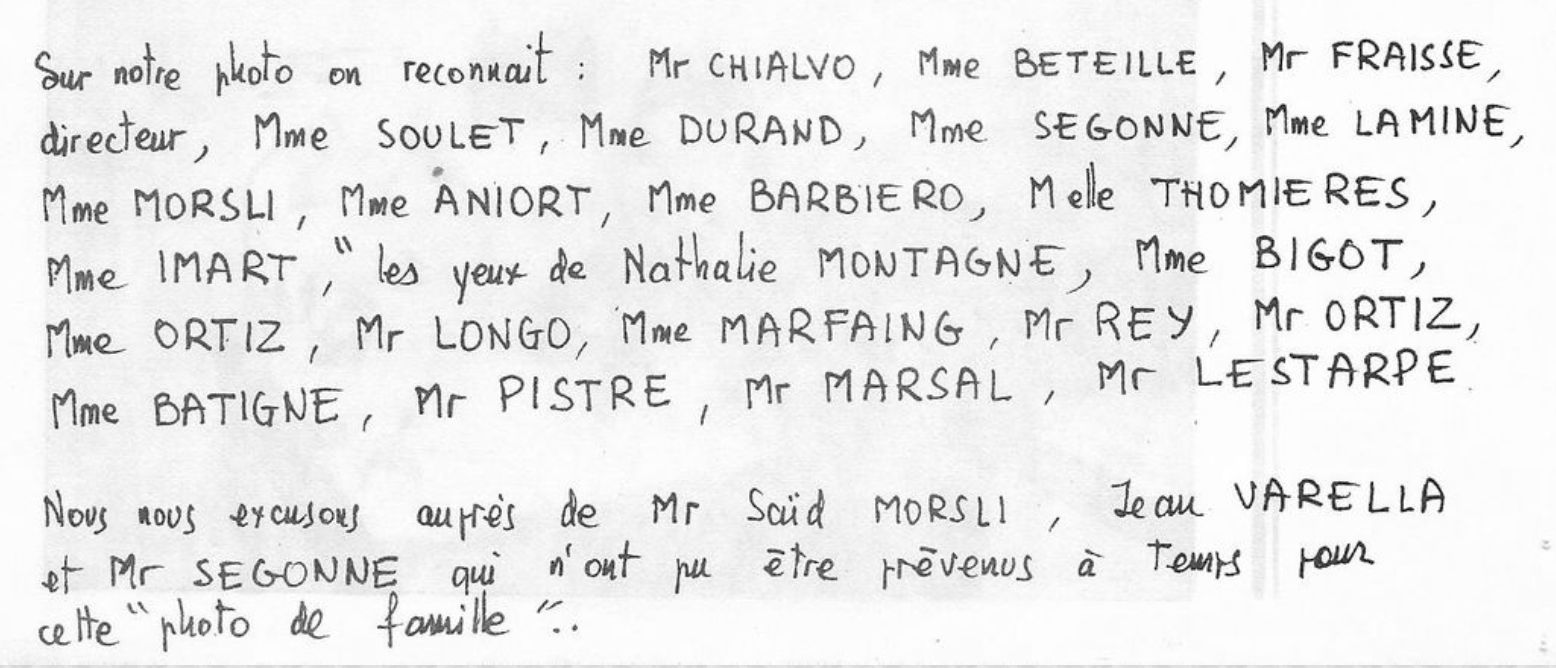 Sur notre photo on reconnait : Mr CHIALVO, Mme BETEILLE, Mr FRAISSE,
directeur, Mme SOULET, Mme DURAND, Mme SEGONNE, Mme LAMINE,
Mme MORSLI, Mme ANIORT, Mme BARBIERO, Melle THOMIERES,
Mme IMART, " les yeux de Nathalie MONTAGNE, Mme BIGOT,
Mme ORTIZ, Mr LONGO, Mme MARFAING, Mr REY, Mr ORTIZ,
Mme BATIGNE, Mr PISTRE, Mr MARSAL, Mr LESTARPE
Nous nous excusons auprès de Mr Saïd MORSLI, Jean VARELLA
et Mr SEGONNE qui n'ont pu être prévenus à temps pour
cette "photo de famille"..